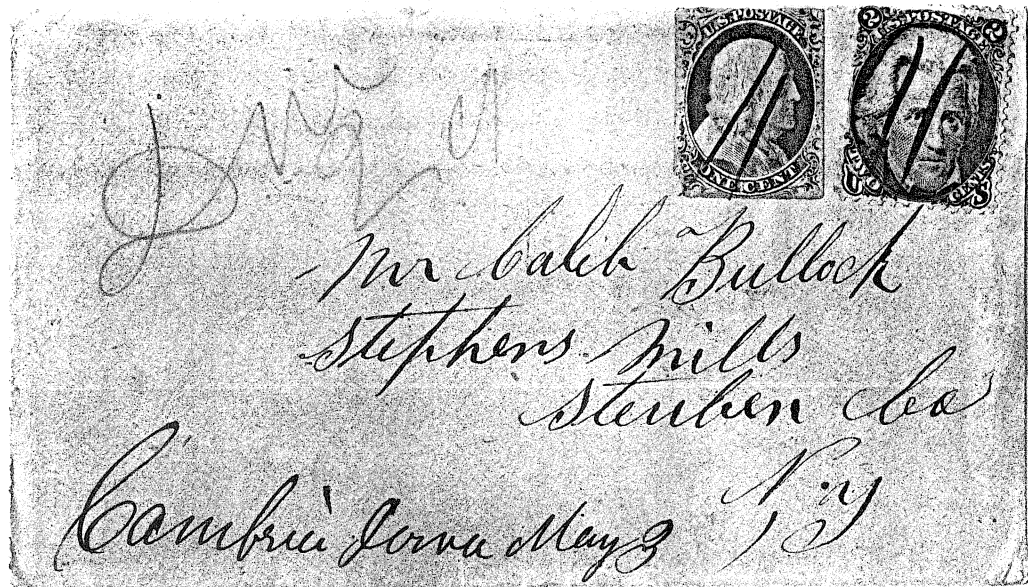 U.S. POSTAGE
ONE CENT
2 U.S. POSTAGE 2
TWO CENTS
Mr Caleb Bullock
Stephens Mills
Steuben Co
N.Y
Cambria Iowa May 3